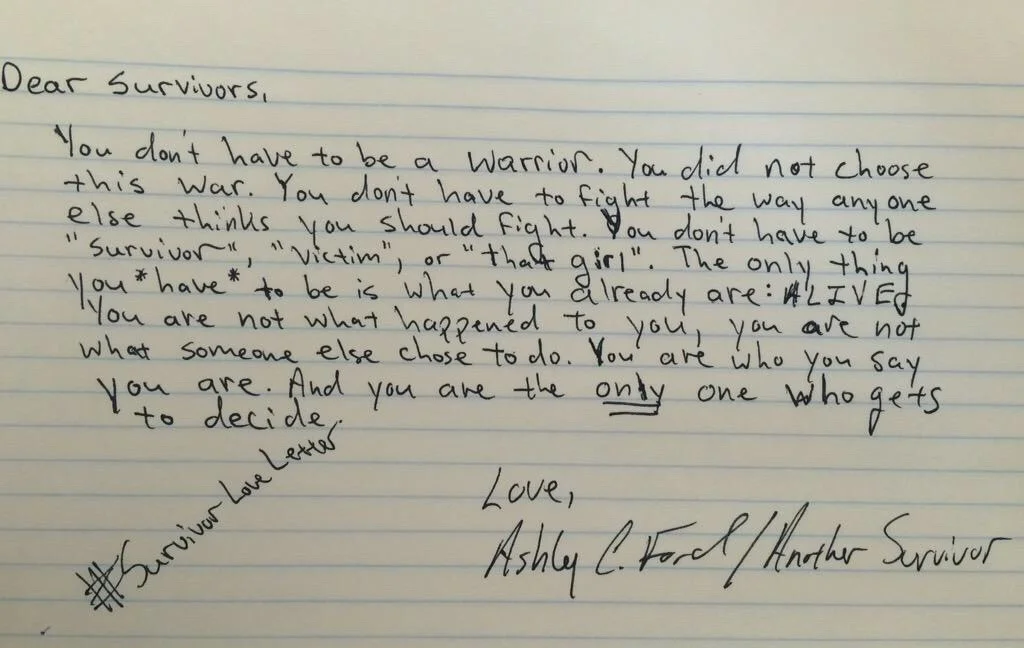 Dear Survivors,
You don't have to be a warrior. You did not choose
this war. You don't have to fight the way anyone
else thinks you should fight. You don't have to be
"survivor", "victim", or "that girl". The only thing
you *have* to be is what you already are: ALIVE.
You are not what happened to you, you are not
what someone else chose to do. You are who you say
you are. And you are the only one who gets
to decide.
#Survivor Love Letter
Love,
Ashley C. Ford/Another Survivor